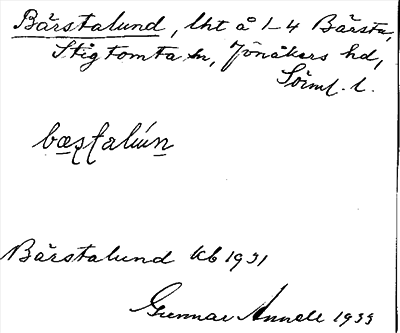 Bärstalund, lht å 1-4 Bärsta,
Stigtomta sn, Jönåkers hd,
Söml. l.
bæsṭalún
Bärstalund kb 1931
Gunnar Annell 1933